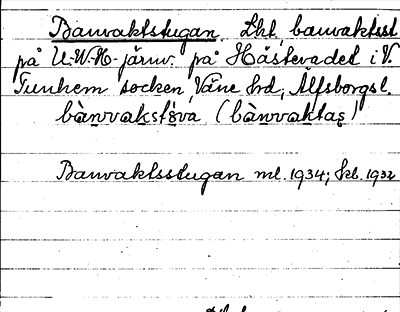 Banvaktstugan. Lht, banvaktsst
på U.-W.-H-järnv. på Håstevadet i V.
Tunhem socken, Väne hrd, Älfsborgs l.
bànvakstɵ́va (bànvaktas)
Banvaktsstugan ml. 1934; skl. 1932